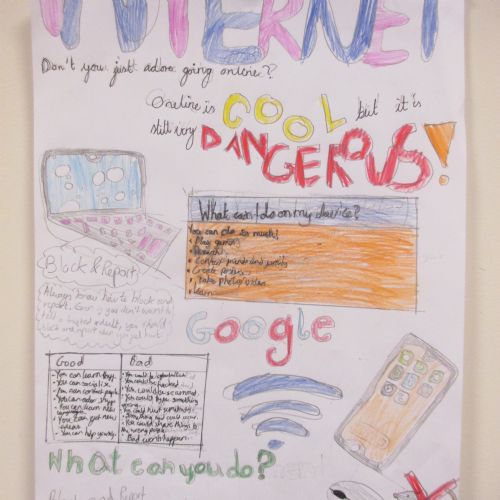 INTERNET
Don't you just adore going online??
Online is COOL but it is
still very DANGEROUS!
What can I do on my device?
You can do so much!
• Play games
• Research
• Contact friends and family
• Create
• Take photos/video
• Learn
Block & Report
Always know how to block and
report. Even if you don't want to
tell a trusted adult, you should
block and report when you get hurt
Google
Good
Bad
• You can learn
• You can socialise
• You can contact people
• You can order
• You can learn new
• You can get new
• You can help
• You could be
• You could be hacked
• You could be scammed
• You could buy something
wrong
• You could hurt somebody
• Something bad could
• You could share things to
the wrong people
• Bad words happen
What can you do?
Block and Report